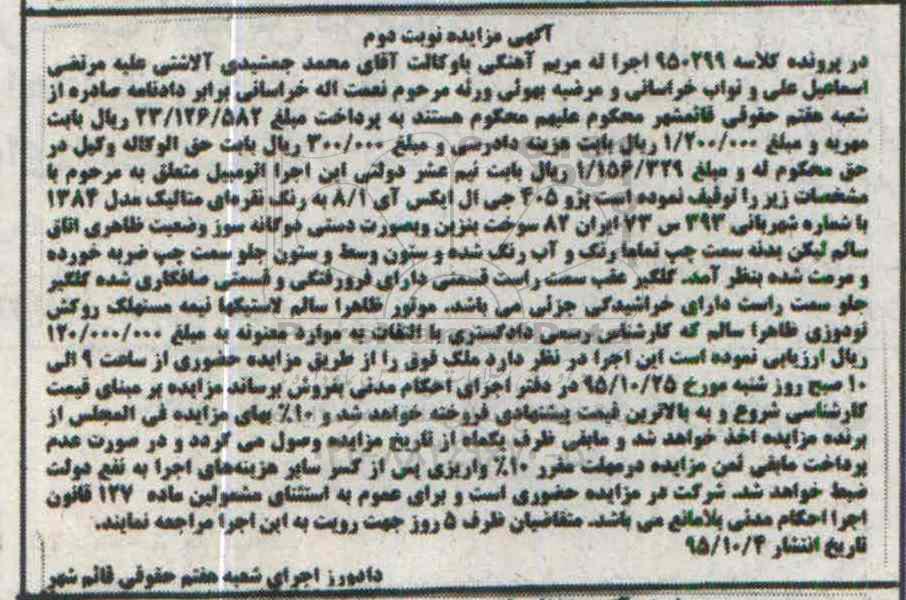 آگهی مزایده نوبت دوم
در پرونده کلاسه ۹۵۰۲۹۹ اجرا له مریم آهنگی باوکالت آقای محمد جمشیدی آلاشتی علیه مرتضی
اسماعیل علی و نواب خراسانی و مرضیه بهوئی ورثه مرحوم نعمت اله خراسانی برابر دادنامه صادره از
شعبه هفتم حقوقی قائمشهر محکوم علیهم محکوم هستند به پرداخت مبلغ ۲۳/۱۲۶/۵۸۲ ریال بابت
مهریه و مبلغ ۱/۲۰۰/۰۰۰ ریال بابت هزینه دادرسی و مبلغ ۳۰۰/۰۰۰ ریال بابت حق الوکاله وکیل در
حق محکوم له و مبلغ ۱/۱۵۶/۳۲۹ ریال بابت نیم عشر دولتی این اجرا اتومبیل متعلق به مرحوم با
مشخصات زیر را توقیف نموده است پژو ۴۰۵ جی ال ایکس آی ۸/۱ به رنگ نقره‌ای متالیک مدل ۱۳۸۴
با شماره شهربانی ۳۹۳ س ۷۳ ایران ۸۲ سوخت بنزین وبصورت دستی دوگانه سوز وضعیت ظاهری اتاق
سالم لیکن بدنه سمت چپ تماما رنگ و آب رنگ شده و ستون وسط و ستون جلو سمت چپ ضربه خورده
و مرمت شده بنظر آمد. گلگیر عقب سمت راست قسمتی دارای فرورفتگی و قسمتی صافکاری شده گلگیر
جلو سمت راست دارای خراشیدگی جزئی می باشد. موتور ظاهرا سالم لاستیکها نیمه مستهلک روکش
تودوزی ظاهرا سالم که کارشناس رسمی دادگستری با التفات به موارد معنونه به مبلغ ۱۲۰/۰۰۰/۰۰۰
ریال ارزیابی نموده است این اجرا در نظر دارد ملک فوق را از طریق مزایده حضوری از ساعت ۹ الی
۱۰ صبح روز شنبه مورخ ۹۵/۱۰/۲۵ در دفتر اجرای احکام مدنی بفروش برساند مزایده بر مبنای قیمت
کارشناسی شروع و به بالاترین قیمت پیشنهادی فروخته خواهد شد و ۱۰٪ بهای مزایده فی المجلس از
برنده مزایده اخذ خواهد شد و مابقی ظرف یکماه از تاریخ مزایده وصول می گردد و در صورت عدم
پرداخت مابقی ثمن مزایده درمهلت مقرر ۱۰٪ واریزی پس از کسر سایر هزینه‌های اجرا به نفع دولت
ضبط خواهد شد. شرکت در مزایده حضوری است و برای عموم به استثنای مشمولین ماده ۱۲۷ قانون
اجرا احکام مدنی بلامانع می باشد. متقاضیان ظرف ۵ روز جهت رویت به این اجرا مراجعه نمایند.
تاریخ انتشار ۹۵/۱۰/۴
دادورز اجرای شعبه هفتم حقوقی قائم شهر